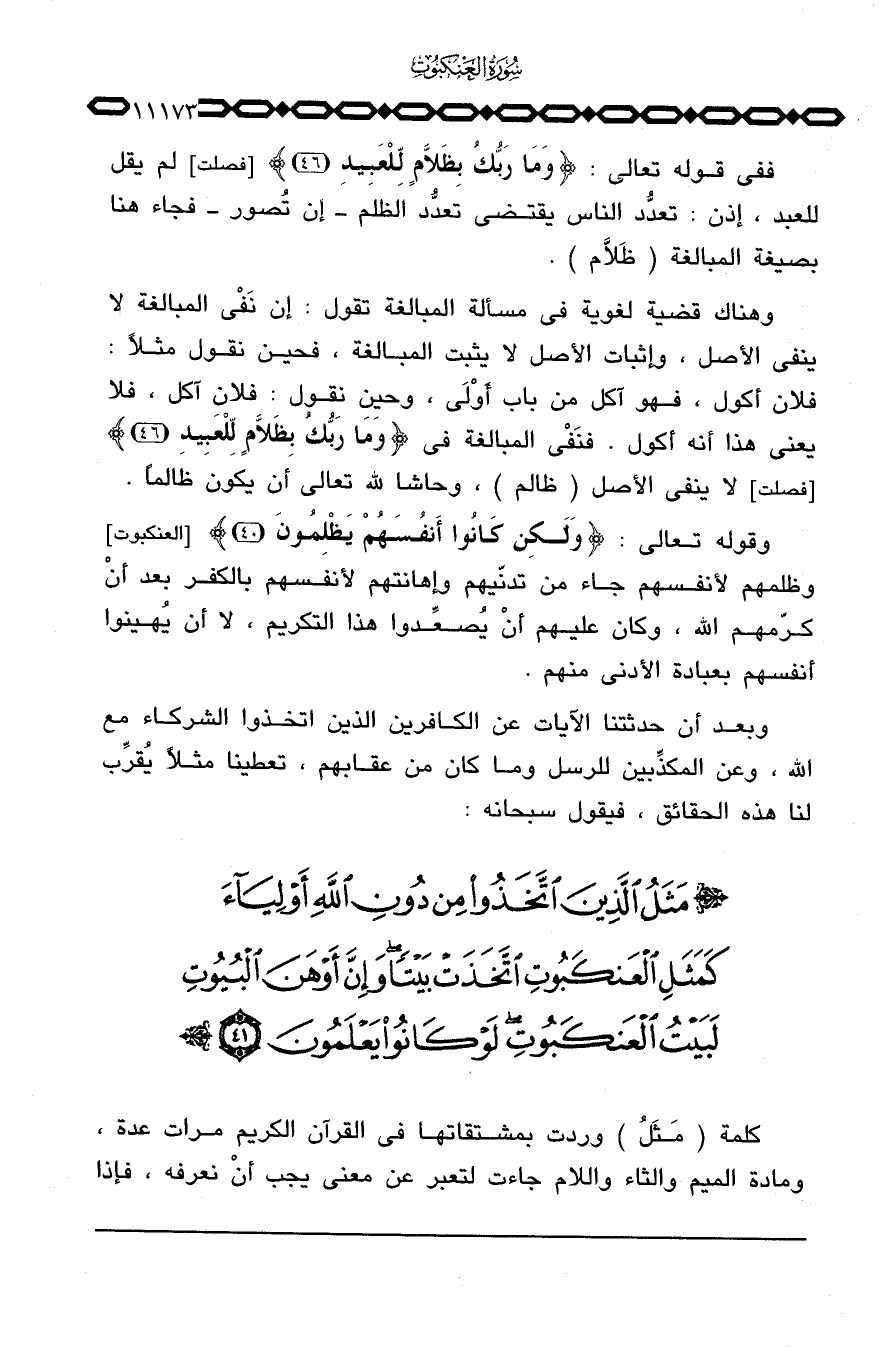 سُورَةُ العَنْكَبُوتِ
١١١٧٣
ففى قوله تعالى : ﴿ وَمَا رَبُّكَ بِظَلاَّمٍ لِّلْعَبِيدِ (٤٦) ﴾ [فصلت] لم يقل
للعبد ، إذن : تعدُّد الناس يقتضى تعدُّد الظلم ـ إن تُصور ـ فجاء هنا
بصيغة المبالغة ( ظَلاَّم ) .
وهناك قضية لغوية فى مسألة المبالغة تقول : إن نَفْى المبالغة لا
ينفى الأصل ، وإثبات الأصل لا يثبت المبالغة ، فحين نقول مثلاً :
فلان أكول ، فهو آكل من باب أَوْلَى ، وحين نقول : فلان آكل ، فلا
يعنى هذا أنه أكول . فنَفْى المبالغة فى ﴿ وَمَا رَبُّكَ بِظَلاَّمٍ لِّلْعَبِيدِ (٤٦) ﴾
[فصلت] لا ينفى الأصل ( ظالم ) ، وحاشا لله تعالى أن يكون ظالماً .
وقوله تعالى : ﴿ وَلَـكِن كَانُوا أَنفُسَهُمْ يَظْلِمُونَ (٤٠) ﴾ [العنكبوت]
وظلمهم لأنفسهم جاء من تدنّيهم وإهانتهم لأنفسهم بالكفر بعد أنْ
كرّمهم الله ، وكان عليهم أنْ يُصعِّدوا هذا التكريم ، لا أن يُهينوا
أنفسهم بعبادة الأدنى منهم .
وبعد أن حدثتنا الآيات عن الكافرين الذين اتخذوا الشركاء مع
الله ، وعن المكذِّبين للرسل وما كان من عقابهم ، تعطينا مثلاً يُقرِّب
لنا هذه الحقائق ، فيقول سبحانه :
﴿ مَثَلُ ٱلَّذِينَ ٱتَّخَذُوا۟ مِن دُونِ ٱللَّهِ أَوْلِيَآءَ
كَمَثَلِ ٱلْعَنكَبُوتِ ٱتَّخَذَتْ بَيْتًا ۖ وَإِنَّ أَوْهَنَ ٱلْبُيُوتِ
لَبَيْتُ ٱلْعَنكَبُوتِ ۖ لَوْ كَانُوا۟ يَعْلَمُونَ (٤١) ﴾
كلمة ( مَثَلُ ) وردت بمشتقاتها فى القرآن الكريم مرات عدة ،
ومادة الميم والثاء واللام جاءت لتعبر عن معنى يجب أنْ نعرفه ، فإذا